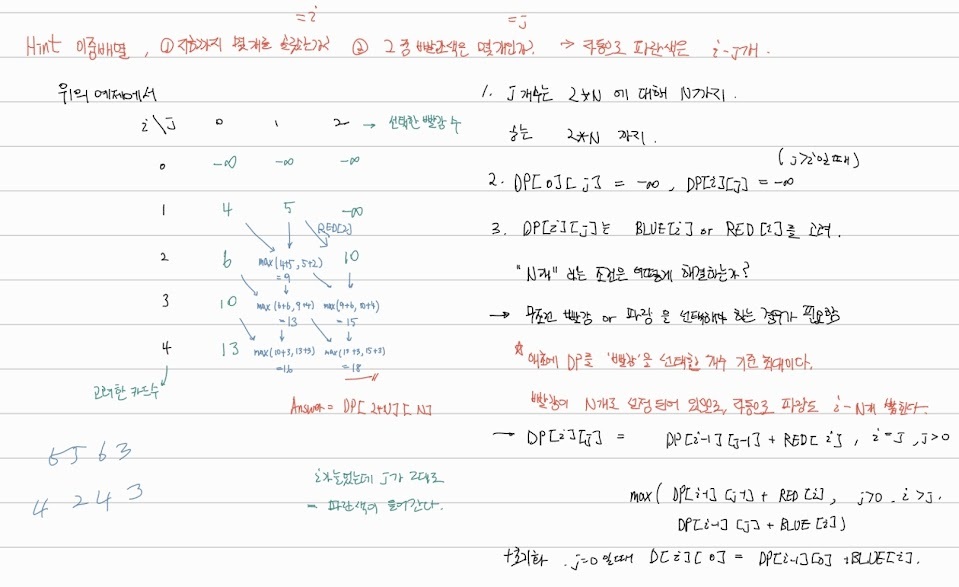 =i
=j
Hint 이중배열, ① 지금까지 몇개를 골랐는가? ② 그 중 빨간색은 몇개인가? → 자동으로 파란색은 i-j개.
위의 예제에서
i\j 0 1 2 → 선택한 빨강 수
0 -∞ -∞ -∞
1 4 5 -∞
RED[2]
2 6 max(4+5, 5+2) =9 10
3 10 max(6+6, 9+4) =13 max(9+6, 10+4) =15
4 13 max(10+3, 13+3) =16 max(13+3, 15+3) =18
고려한 카드수
Answer = DP[2*N][N]
5 5 6 3
4 2 4 3
i가 늘었는데 j가 그대로
- 파란색이 들어간다.
1. j 개수는 2*N 에 대해 N가지.
i는 2*N 까지.
(j>i일 때)
2. DP[0][j] = -∞, DP[i][j] = -∞
3. DP[i][j]는 BLUE[i] or RED[i]를 고려.
"N개" 라는 조건은 어떻게 해결하는가?
→ 무조건 빨강 or 파랑 을 선택해야 하는 경우가 필요함
* 애초에 DP를 '빨강'을 선택한 개수 기준 최대이다.
빨강이 N개로 설정 되어 있으므로, 자동으로 파랑도 i-N개 뽑힌다.
→ DP[i][j] = DP[i-1][j-1] + RED[i], i=j, j>0
max( DP[i-1][j-1] + RED[i], j>0. i>j.
DP[i-1][j] + BLUE[i])
+초기화. j=0 일때 D[i][0] = DP[i-1][0] +BLUE[i].